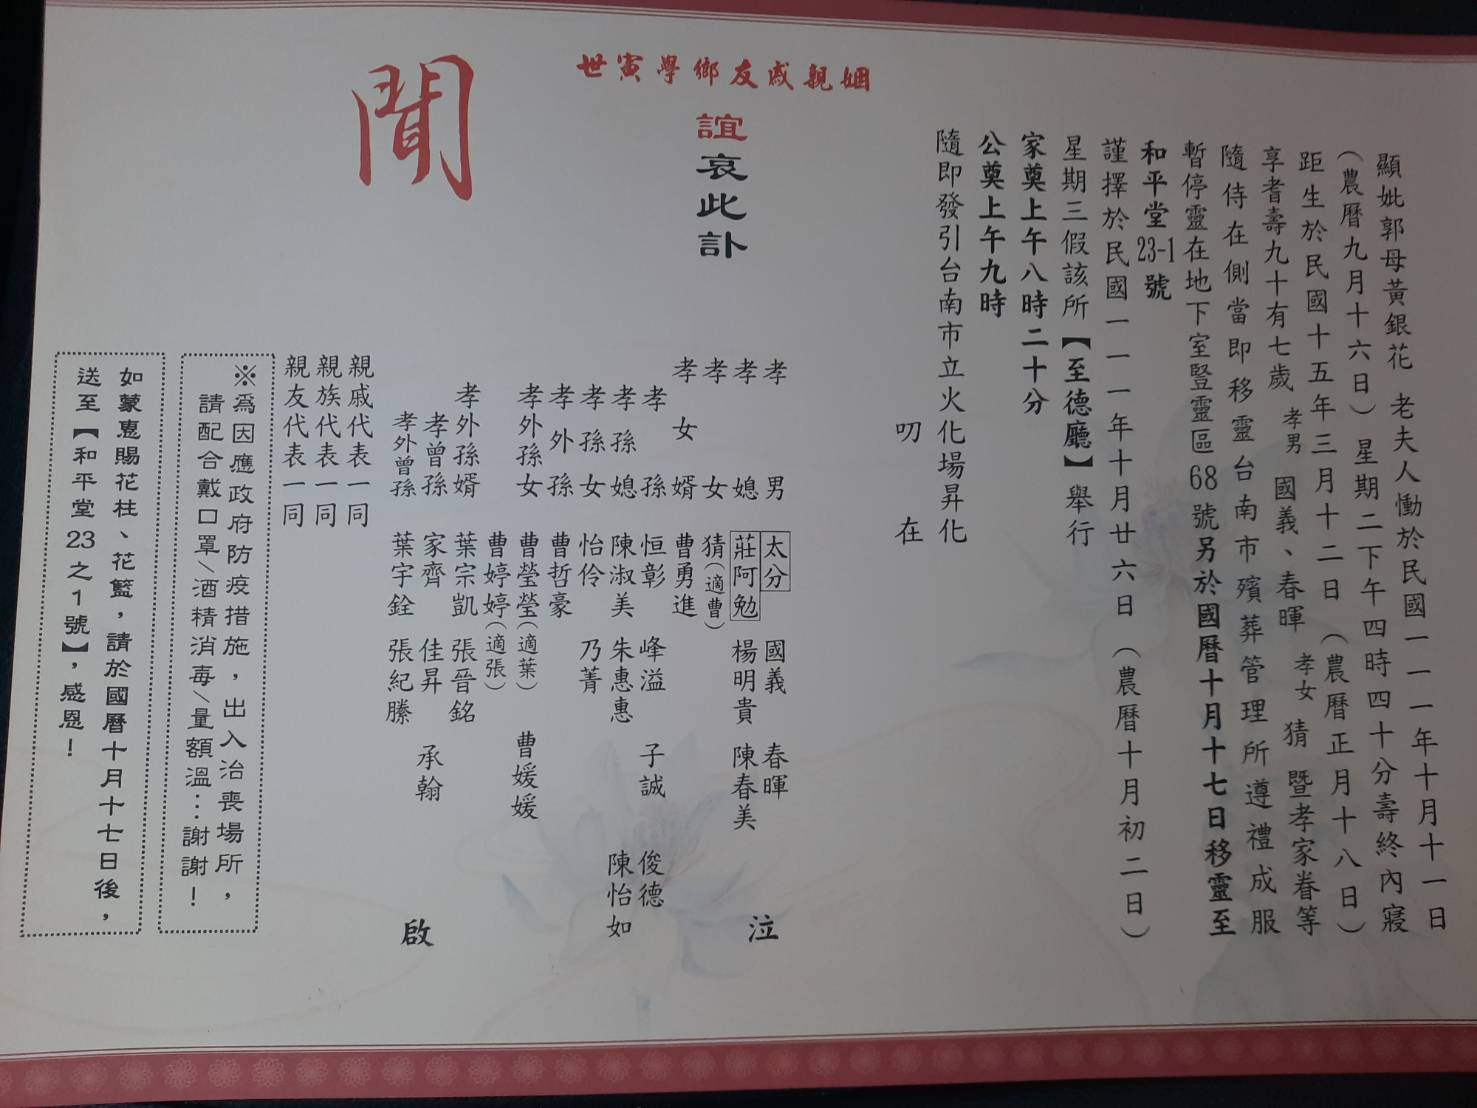 顯妣郭母黃銀花 老夫人慟於民國一一一年十月十一日
（農曆九月十六日）星期二下午四時四十分壽終內寢
距生於民國十五年三月十二日（農曆正月十八日）
享耆壽九十有七歲 孝男 國義、春暉 孝女 猜 暨孝家眷等
隨侍在側當即移靈台南市殯葬管理所遵禮成服
暫停靈在地下室豎靈區68號另於國曆十月十七日移靈至
和平堂23-1號
謹擇於民國一一一年十月廿六日（農曆十月初二日）
星期三假該所【至德廳】舉行
家奠上午八時二十分
公奠上午九時
隨即發引台南市立火化場昇化
叨 在
姻親戚友鄉學寅世
誼哀此訃
聞
孝男 太分 國義 春暉
孝媳 莊阿勉 楊明貴 陳春美
孝女 猜（適曹）
孝女婿 曹勇進
孝孫 恒彰 峰溢 子誠 俊德
孝孫媳 陳淑美 朱惠惠 陳怡如
孝孫女 怡伶 乃菁
孝外孫 曹哲豪
孝外孫女 曹瑩瑩（適葉） 曹媛媛
曹婷婷（適張）
孝外孫婿 葉宗凱 張晉銘
孝曾孫 家齊 佳昇 承翰
孝外曾孫 葉宇銓 張紀騰
泣
啟
親戚代表一同
親族代表一同
親友代表一同
※為因應政府防疫措施，出入治喪場所，
請配合戴口罩\酒精消毒\量額溫…謝謝！
如蒙惠賜花柱、花籃，請於國曆十月十七日後，
送至【和平堂23之1號】，感恩！